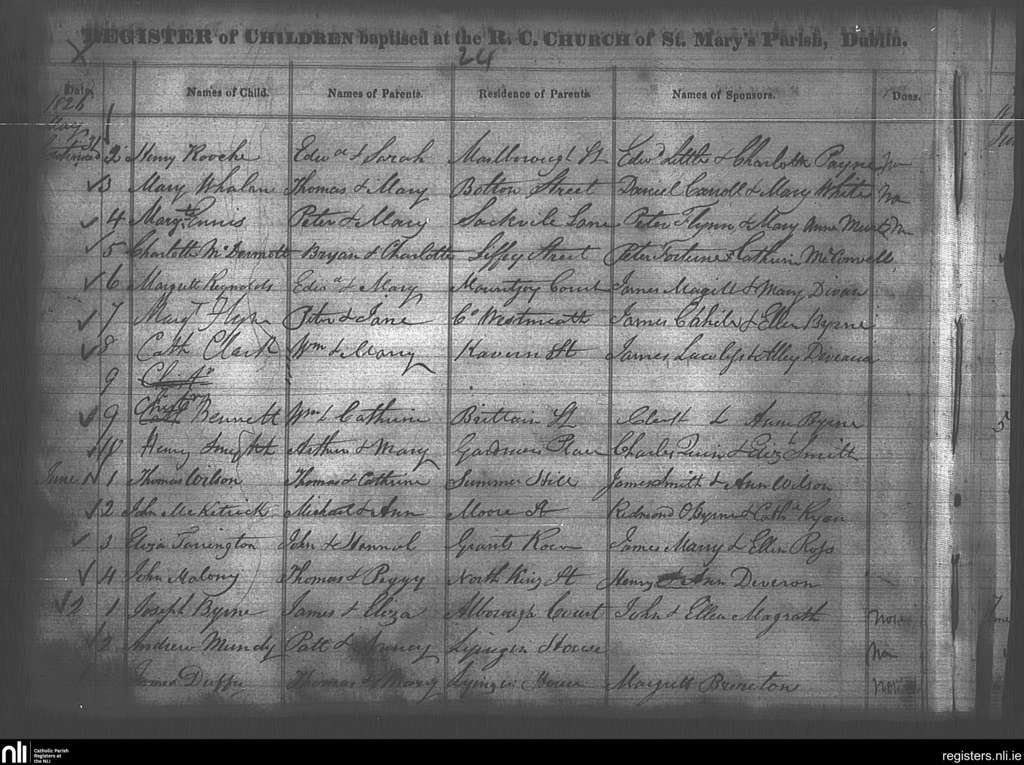 REGISTER of CHILDREN baptised at the R. C. CHURCH of St. Mary's Parish, Dublin.
24
Date. Names of Child. Names of Parents. Residence of Parents. Names of Sponsors. Dues.
1826
May 1
2 Henry Rooche Edwd & Sarah Marlborough St Edwd Little & Charlotte Payne No
3 Mary Whalan Thomas & Mary Bolton Street Daniel Carroll & Mary White No
4 Margt Ennis Peter & Mary Sackvile Lane Peter Flynn & Mary Anne
5 Charlotte McDermott Bryan & Charlotte Liffey Street Peter Fortune & Cathrin McConnell
6 Margrett Reynolds Edwd & Mary Mountjoy Court James Magill & Mary
7 Margt Peter & Jane Co Westmeath James Cahile & Ellen Byrne
8 Cath Clark Wm & Mary Kavern St James & Alley
9
9 Bennett Wm & Cathrine Brittain St Clark & Anne Byrne
10 Henry Arthur & Mary Gardiners Place Charles Quin & Eliz Smith
June 1 Thomas Wilson Thomas & Cathrine Summer Hill James Smith & Ann Wilson
2 John McKetrick Michael & Ann Moore St Redmond O Byrne & Cath Ryan
3 Eliza Tarrington John & Hannah Grants Row James Marry & Ellen Ross
4 John Malony Thomas & Peggy North King St Henry & Ann Deveron
2 1 Joseph Byrne James & Eliza Alborough Court John & Ellen Magrath
2 Andrew Mundy Patt & Nancy Lyingin House No
James Duffy Thomas & Mary Lyingin House Margrett Brereton
nli Catholic Parish Registers at the NLI
registers.nli.ie